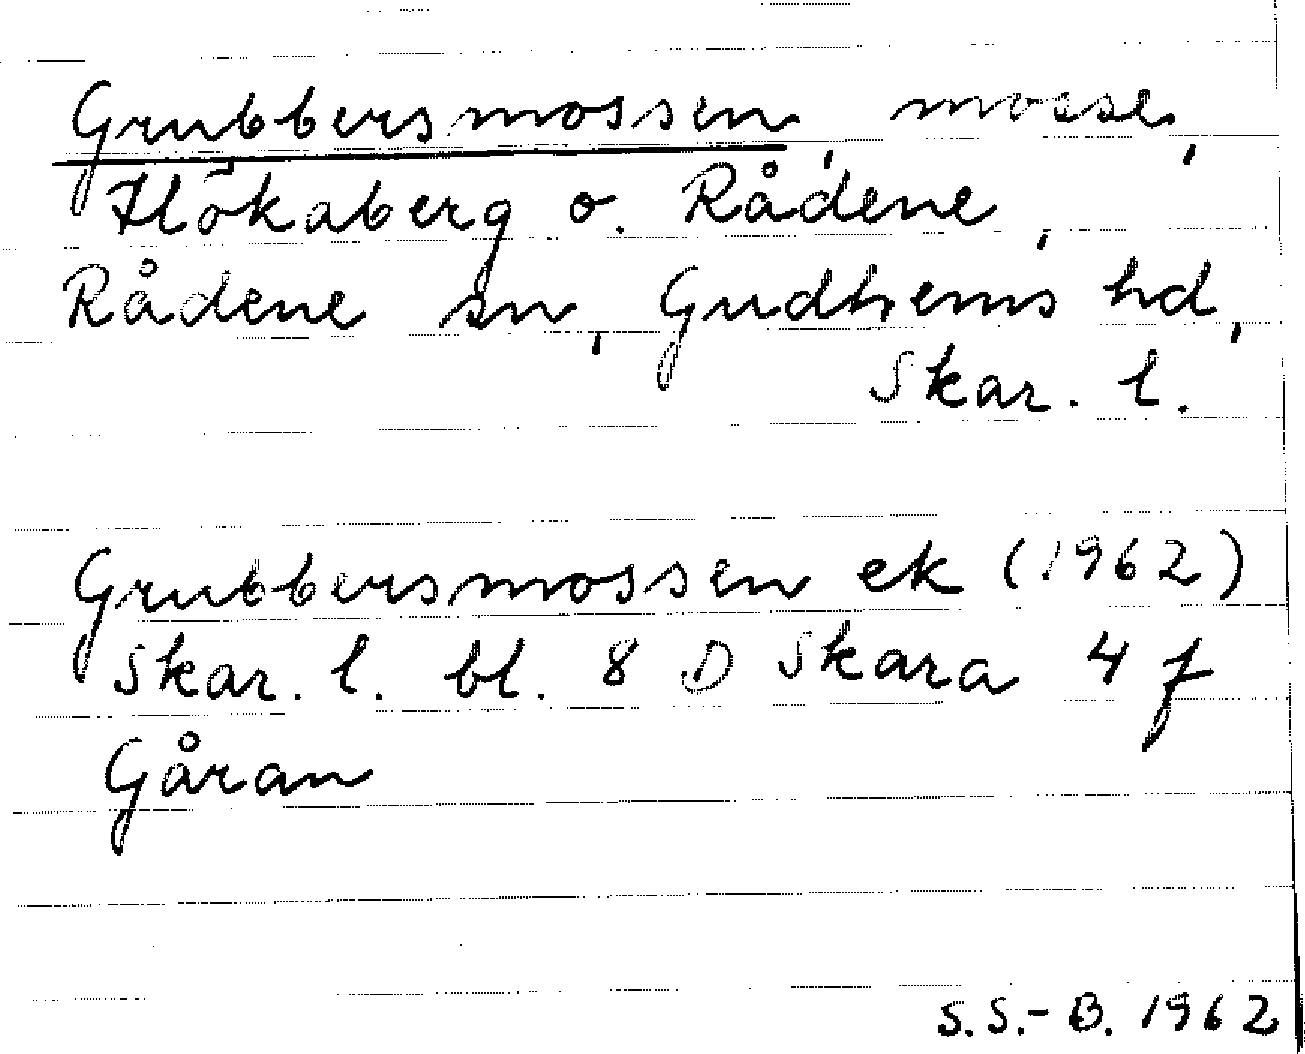 Grubbersmossen, mosse,
Hökaberg o. Rådene,
Rådene sn, Gudhems hd,
Skar. l.
Grubbersmossen ek (1962)
Skar. l. bl. 8 D Skara 4 f
Gåran
S.S.-B. 1962